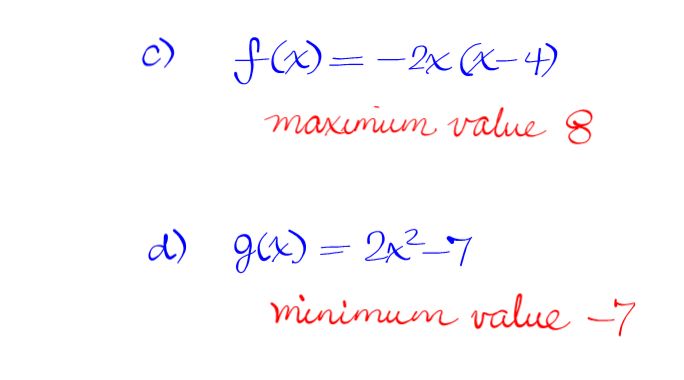 c) f(x) = -2x(x-4)
maximum value 8
d) g(x) = 2x²-7
minimum value -7